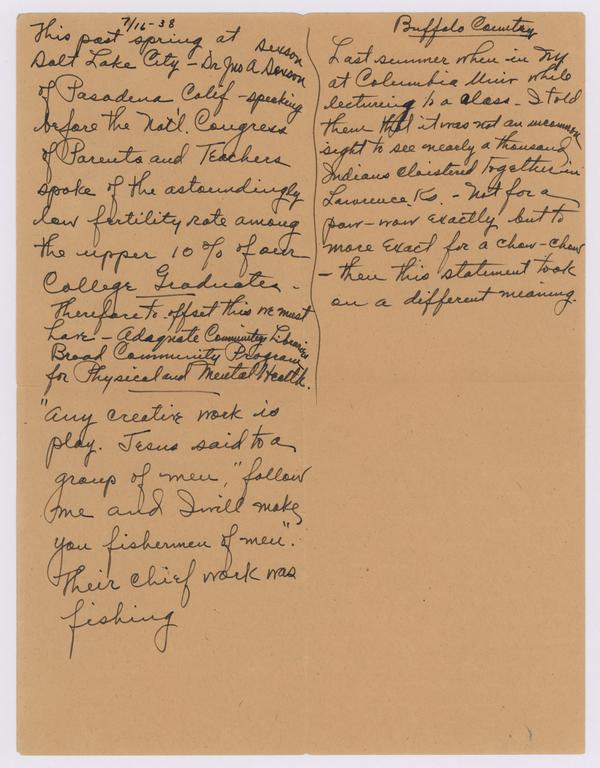 7/16-38
This past spring at
Sexson
Salt Lake City - Dr Jno A. Sexson
of Pasadena Calif - speaking
before the Nat'l. Congress
of Parents and Teachers
spoke of the astoundingly
low fertility rate among
the upper 10% of our
College Graduates -
Therefore to offset this we must
have - Adaquate Community Libraries
Broad Community Program
for Physical and Mental Health.
"Any creative work is
play. Jesus said to a
group of men, "follow
me and I will make
you fishermen of men".
Their chief work was
fishing
Buffalo Country
Last summer when in NY
at Columbia Univ while
lecturing to a class - I told
them that it was not an uncommon
sight to see nearly a thousand
Indians cloistered together in
Lawrence, Ks. - Not for a
pow-wow exactly but to
more exact for a chow-chow
- then this statement took
on a different meaning.